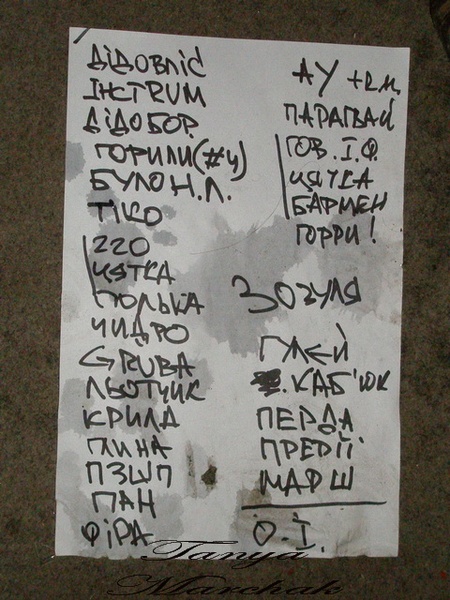 ДІДОВЛІС
ІНСТRUM
ДІДОБОР
ГОРИЛИ(#Ч)
БУЛО Н.Л.
ТІКО
220
ЦЯТКА
ПОЛЬКА
ЧИДРО
GRUBA
ЛЬОТЧИК
КРИЛА
ПЗШП
ПАН
ФІРА
АУ
ПАРАГВАЙ
ГОВ. І.Ф.
ЦЯЧКА
БАРМЕН
ГОРРИ!
ЗОЗУЛЯ
. КАБ'ЮК
ПЕРДА
ПРЕРІЇ
МАРШ
О.І.
Tanya
Marchak